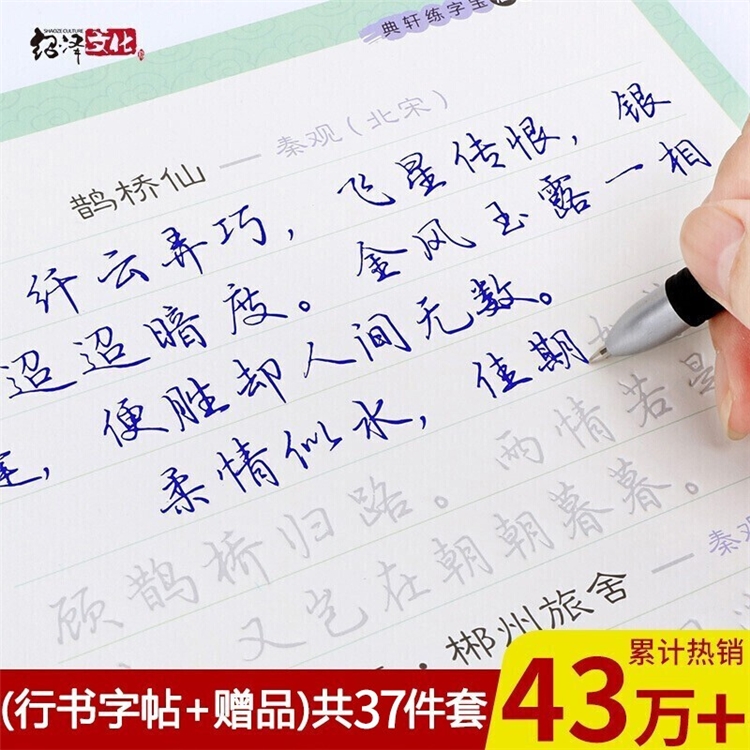 绍泽文化
SHAOZE CULTURE
典轩练字宝
鹊桥仙 — 秦观(北宋)
纤云弄巧，飞星传恨，银
迢迢暗度。金风玉露一相
便胜却人间无数。
柔情似水，佳期
顾鹊桥归路。两情若是
又岂在朝朝暮暮。
— 秦
·郴州旅舍
(行书字帖+赠品)共37件套
累计热销
43万+